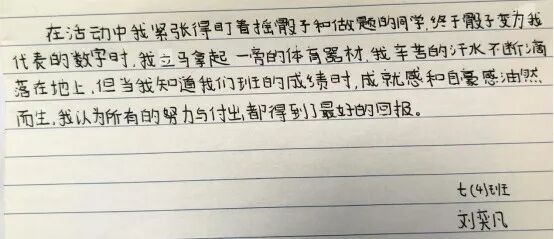 在活动中我紧张得盯着摇骰子和做题的同学,终于骰子变为我
代表的数字时,我立马拿起一旁的体育器材,我辛苦的汗水不断滴
落在地上,但当我知道我们班的成绩时,成就感和自豪感油然
而生,我认为所有的努力与付出都得到了最好的回报。
七(4)班
刘奕凡